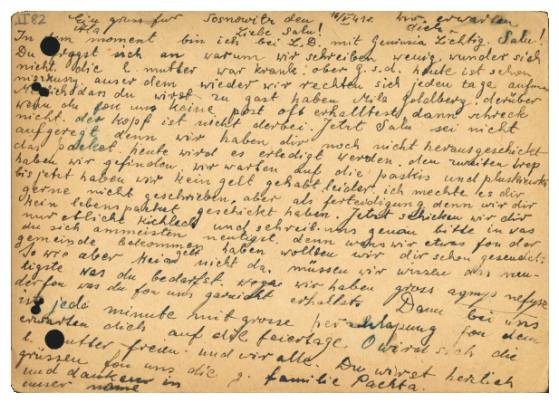 II 82 Ein gruss fur Sosnowitz den wir erwarten
Ala Liebe Salu! dich Salu!
In dem moment bin ich bei L.D. mit Geniusia Lichtig.
Du fragst sich an warum wir schreiben wenig, wunder sich
nicht, die l. mutter war krank, ober G.s.d. heute ist schon
auser dem wieder wir rechten sich jeden tage aufm
dass du wirst zu gast haben Mila Goldberg. derüber
wenn du fon uns keine post oft erhalltest, dann schreck
nicht. der kopf ist nicht derbei. Jetzt Salu sei nicht
aufgeregt denn wir haben dir noch nicht herausgeschickt
das packet. heute wird es erledigt werden. den zweiten brep
haben wir gefinden. wir warten auf die paskis und
bis jetzt haben wir kein gelt gehabt leider. ich mechte es dir
gerne nicht geschrieben, aber als ferteidigung denn wir dir
kein lebens paket geschickt haben. Jetzt schicken wir dir
nur etliche Kichlech und schreib uns genau bitte in was
du sich ammeisten neutigst, denn wenn wir etwas fon der
gemeinde bekommen haben wollten wir dir schon gesendet;
So wie aber keiad gelt nicht da, müssen wir wissen das neu-
ligste was du bedarfst. wegen wir haben gross agmys nefysz
derfon was du fon uns garnicht erhallts. Dann bei uns
ist jede minute mit grosse fon dem
erwarten dich auf die feiertage. O wird sich die
l. mutter freien. und wir alle. Du wirst herzlich
grüssen fon uns die g. familie Pachta.
und danken in
unser name